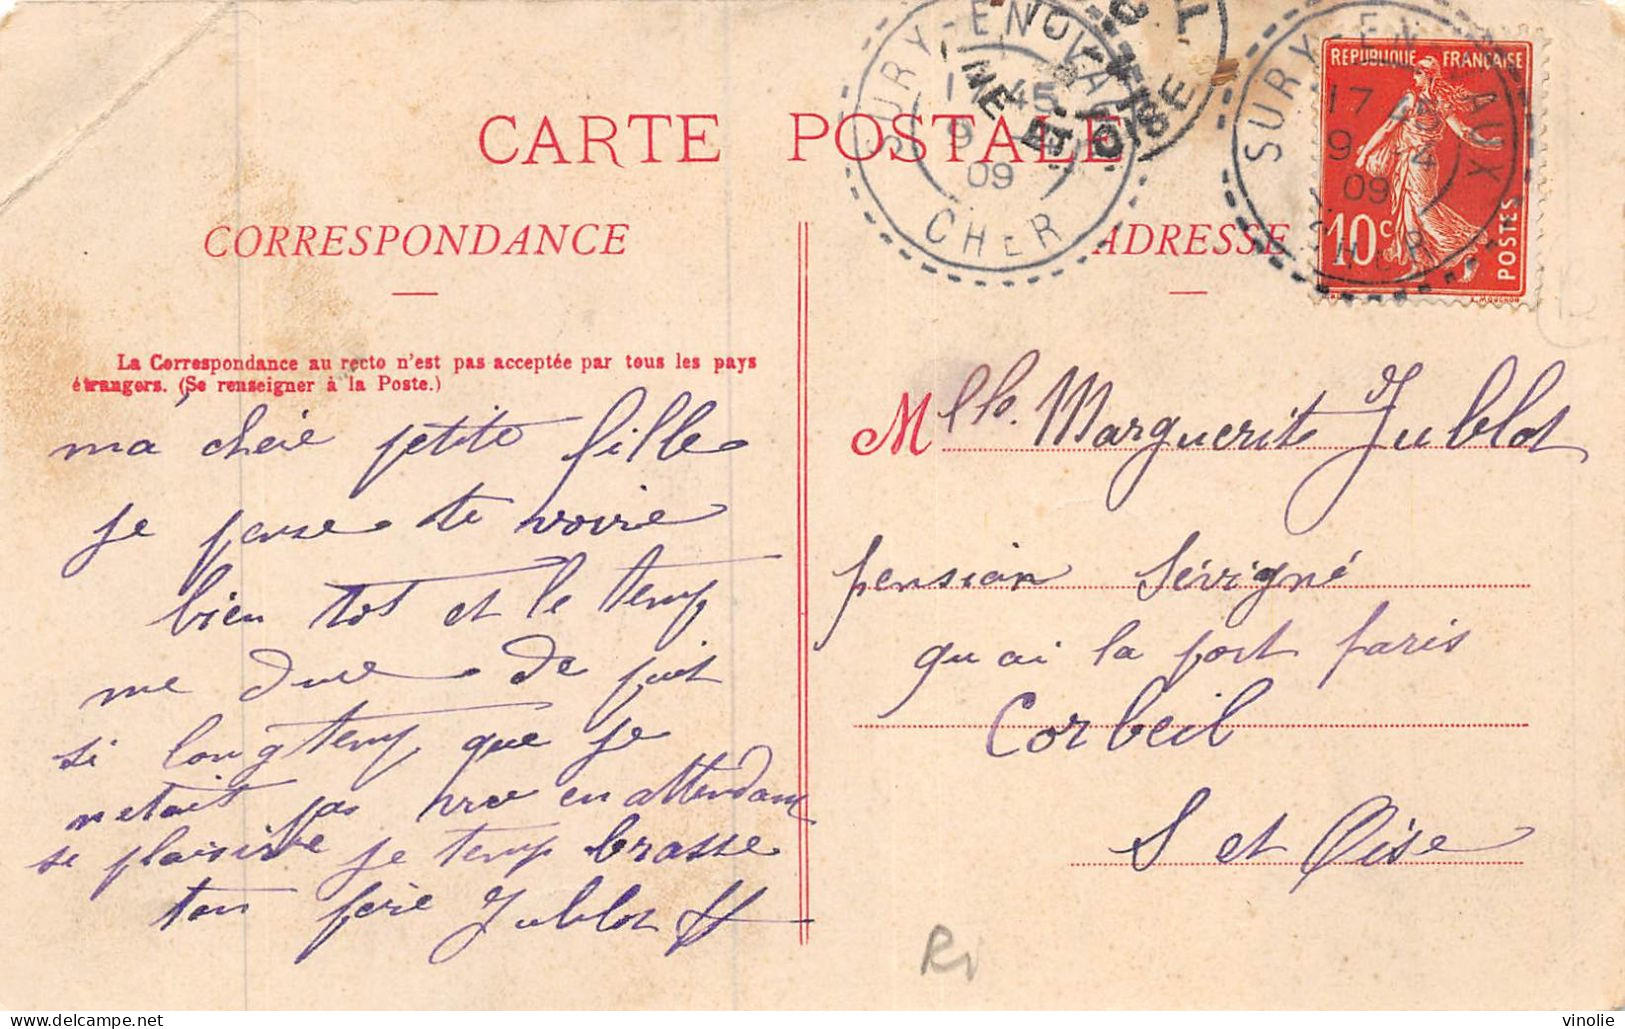 CARTE POSTALE
CORRESPONDANCE
La Correspondance au recto n'est pas acceptée par tous les pays
étrangers. (Se renseigner à la Poste.)
ma chère petite fille
je panse te voire
bien tot et le temp
me dure de puit
si longtemp que je
netait pas vue en attendant
se plaisire je temp brasse
ton père Jublot
ADRESSE
Mlle. Marguerite Jublot
pension Sévigné
quai la port paris
Corbeil
S et Oise
SURY-EN-VAUX
17 45
9 4
09
CHER
SURY-EN-VAUX
17 45
9 4
09
CHER
OISE
REPUBLIQUE FRANÇAISE
10c
POSTES
E. MOUCHON
vinolie